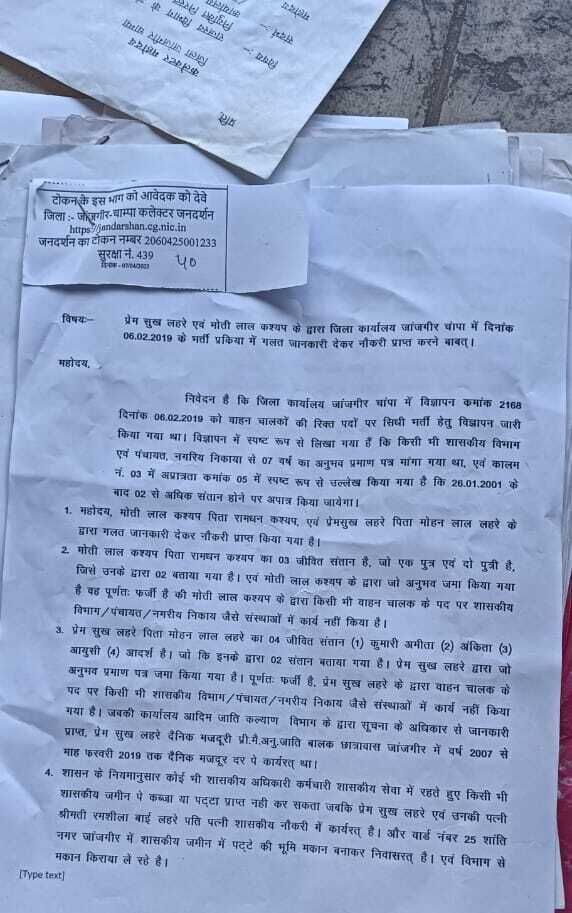 कलेक्टर महोदय
जिला जांजगीर चाम्पा
विषय :-
प्रति,
टोकन के इस भाग को आवेदक को देवे
जिला :- जांजगीर-चाम्पा कलेक्टर जनदर्शन
https://jandarshan.cg.nic.in
जनदर्शन का टोकन नम्बर 2060425001233
सुरक्षा नं. 439
दिनांक - 07/04/2025
40
विषयः– प्रेम सुख लहरे एवं मोती लाल कश्यप के द्वारा जिला कार्यालय जांजगीर चांपा में दिनांक
06.02.2019 के भर्ती प्रकिया में गलत जानकारी देकर नौकरी प्राप्त करने बाबत्।
महोदय,
निवेदन है कि जिला कार्यालय जांजगीर चांपा में विज्ञापन कमांक 2168
दिनांक 06.02.2019 को वाहन चालकों की रिक्त पदों पर सिधी भर्ती हेतु विज्ञापन जारी
किया गया था। विज्ञापन में स्पष्ट रूप से लिखा गया हैं कि किसी भी शासकीय विभाग
एवं पंचायत, नगरिय निकाया से 07 वर्ष का अनुभव प्रमाण पत्र मांगा गया था, एवं कालम
नं. 03 में अपात्रता कमांक 05 में स्पष्ट रूप से उल्लेख किया गया है कि 26.01.2001 के
बाद 02 से अधिक संतान होने पर अपात्र किया जायेगा।
1. महोदय, मोती लाल कश्यप पिता रामधन कश्यप, एवं प्रेमसुख लहरे पिता मोहन लाल लहरे के
द्वारा गलत जानकारी देकर नौकरी प्राप्त किया गया है।
2. मोती लाल कश्यप पिता रामधन कश्यप का 03 जीवित संतान है, जो एक पुत्र एवं दो पुत्री है,
जिसे उनके द्वारा 02 बताया गया है। एवं मोती लाल कश्यप के द्वारा जो अनुभव जमा किया गया
है वह पूर्णतः फर्जी है की मोती लाल कश्यप के द्वारा किसी भी वाहन चालक के पद पर शासकीय
विभाग/पंचायत/नगरीय निकाय जैसे संस्थाओं में कार्य नहीं किया है।
3. प्रेम सुख लहरे पिता मोहन लाल लहरे का 04 जीवित संतान (1) कुमारी अमीता (2) अंकिता (3)
आयुसी (4) आदर्श है। जो कि इनके द्वारा 02 संतान बताया गया है। प्रेम सुख लहरे द्वारा जो
अनुभव प्रमाण पत्र जमा किया गया है। पूर्णतः फर्जी है, प्रेम सुख लहरे के द्वारा वाहन चालक के
पद पर किसी भी शासकीय विभाग/पंचायत/नगरीय निकाय जैसे संस्थाओं में कार्य नहीं किया
गया है। जबकी कार्यालय आदिम जाति कल्याण विभाग के द्वारा सूचना के अधिकार से जानकारी
प्राप्त, प्रेम सुख लहरे दैनिक मजदूरी प्री.मै.अनु.जाति बालक छात्रावास जांजगीर में वर्ष 2007 से
माह फरवरी 2019 तक दैनिक मजदूर दर पे कार्यरत् था।
4. शासन के नियमानुसार कोई भी शासकीय अधिकारी कर्मचारी शासकीय सेवा में रहते हुए किसी भी
शासकीय जमीन पे कब्जा या पट्टा प्राप्त नही कर सकता जबकि प्रेम सुख लहरे एवं उनकी पत्नी
श्रीमती रमशीला बाई लहरे पति पत्नी शासकीय नौकरी में कार्यरत् है। और वार्ड नंबर 25 शांति
नगर जांजगीर में शासकीय जमीन में पट्टे की भूमि मकान बनाकर निवासरत् है। एवं विभाग से
मकान किराया ले रहे है।
[Type text]